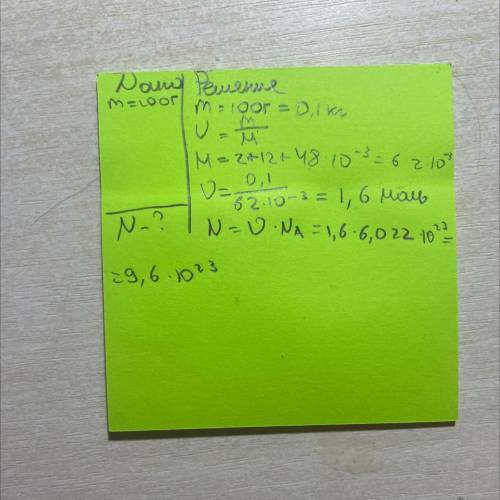 Дано
m=100г
N-?
Решение
m=100г=0,1 кг
υ=m/M
M=2+12+48 10⁻³=62·10⁻³
υ=0,1/62·10⁻³=1,6 моль
N=υ·Nᴀ=1,6·6,022·10²³=
=9,6·10²³